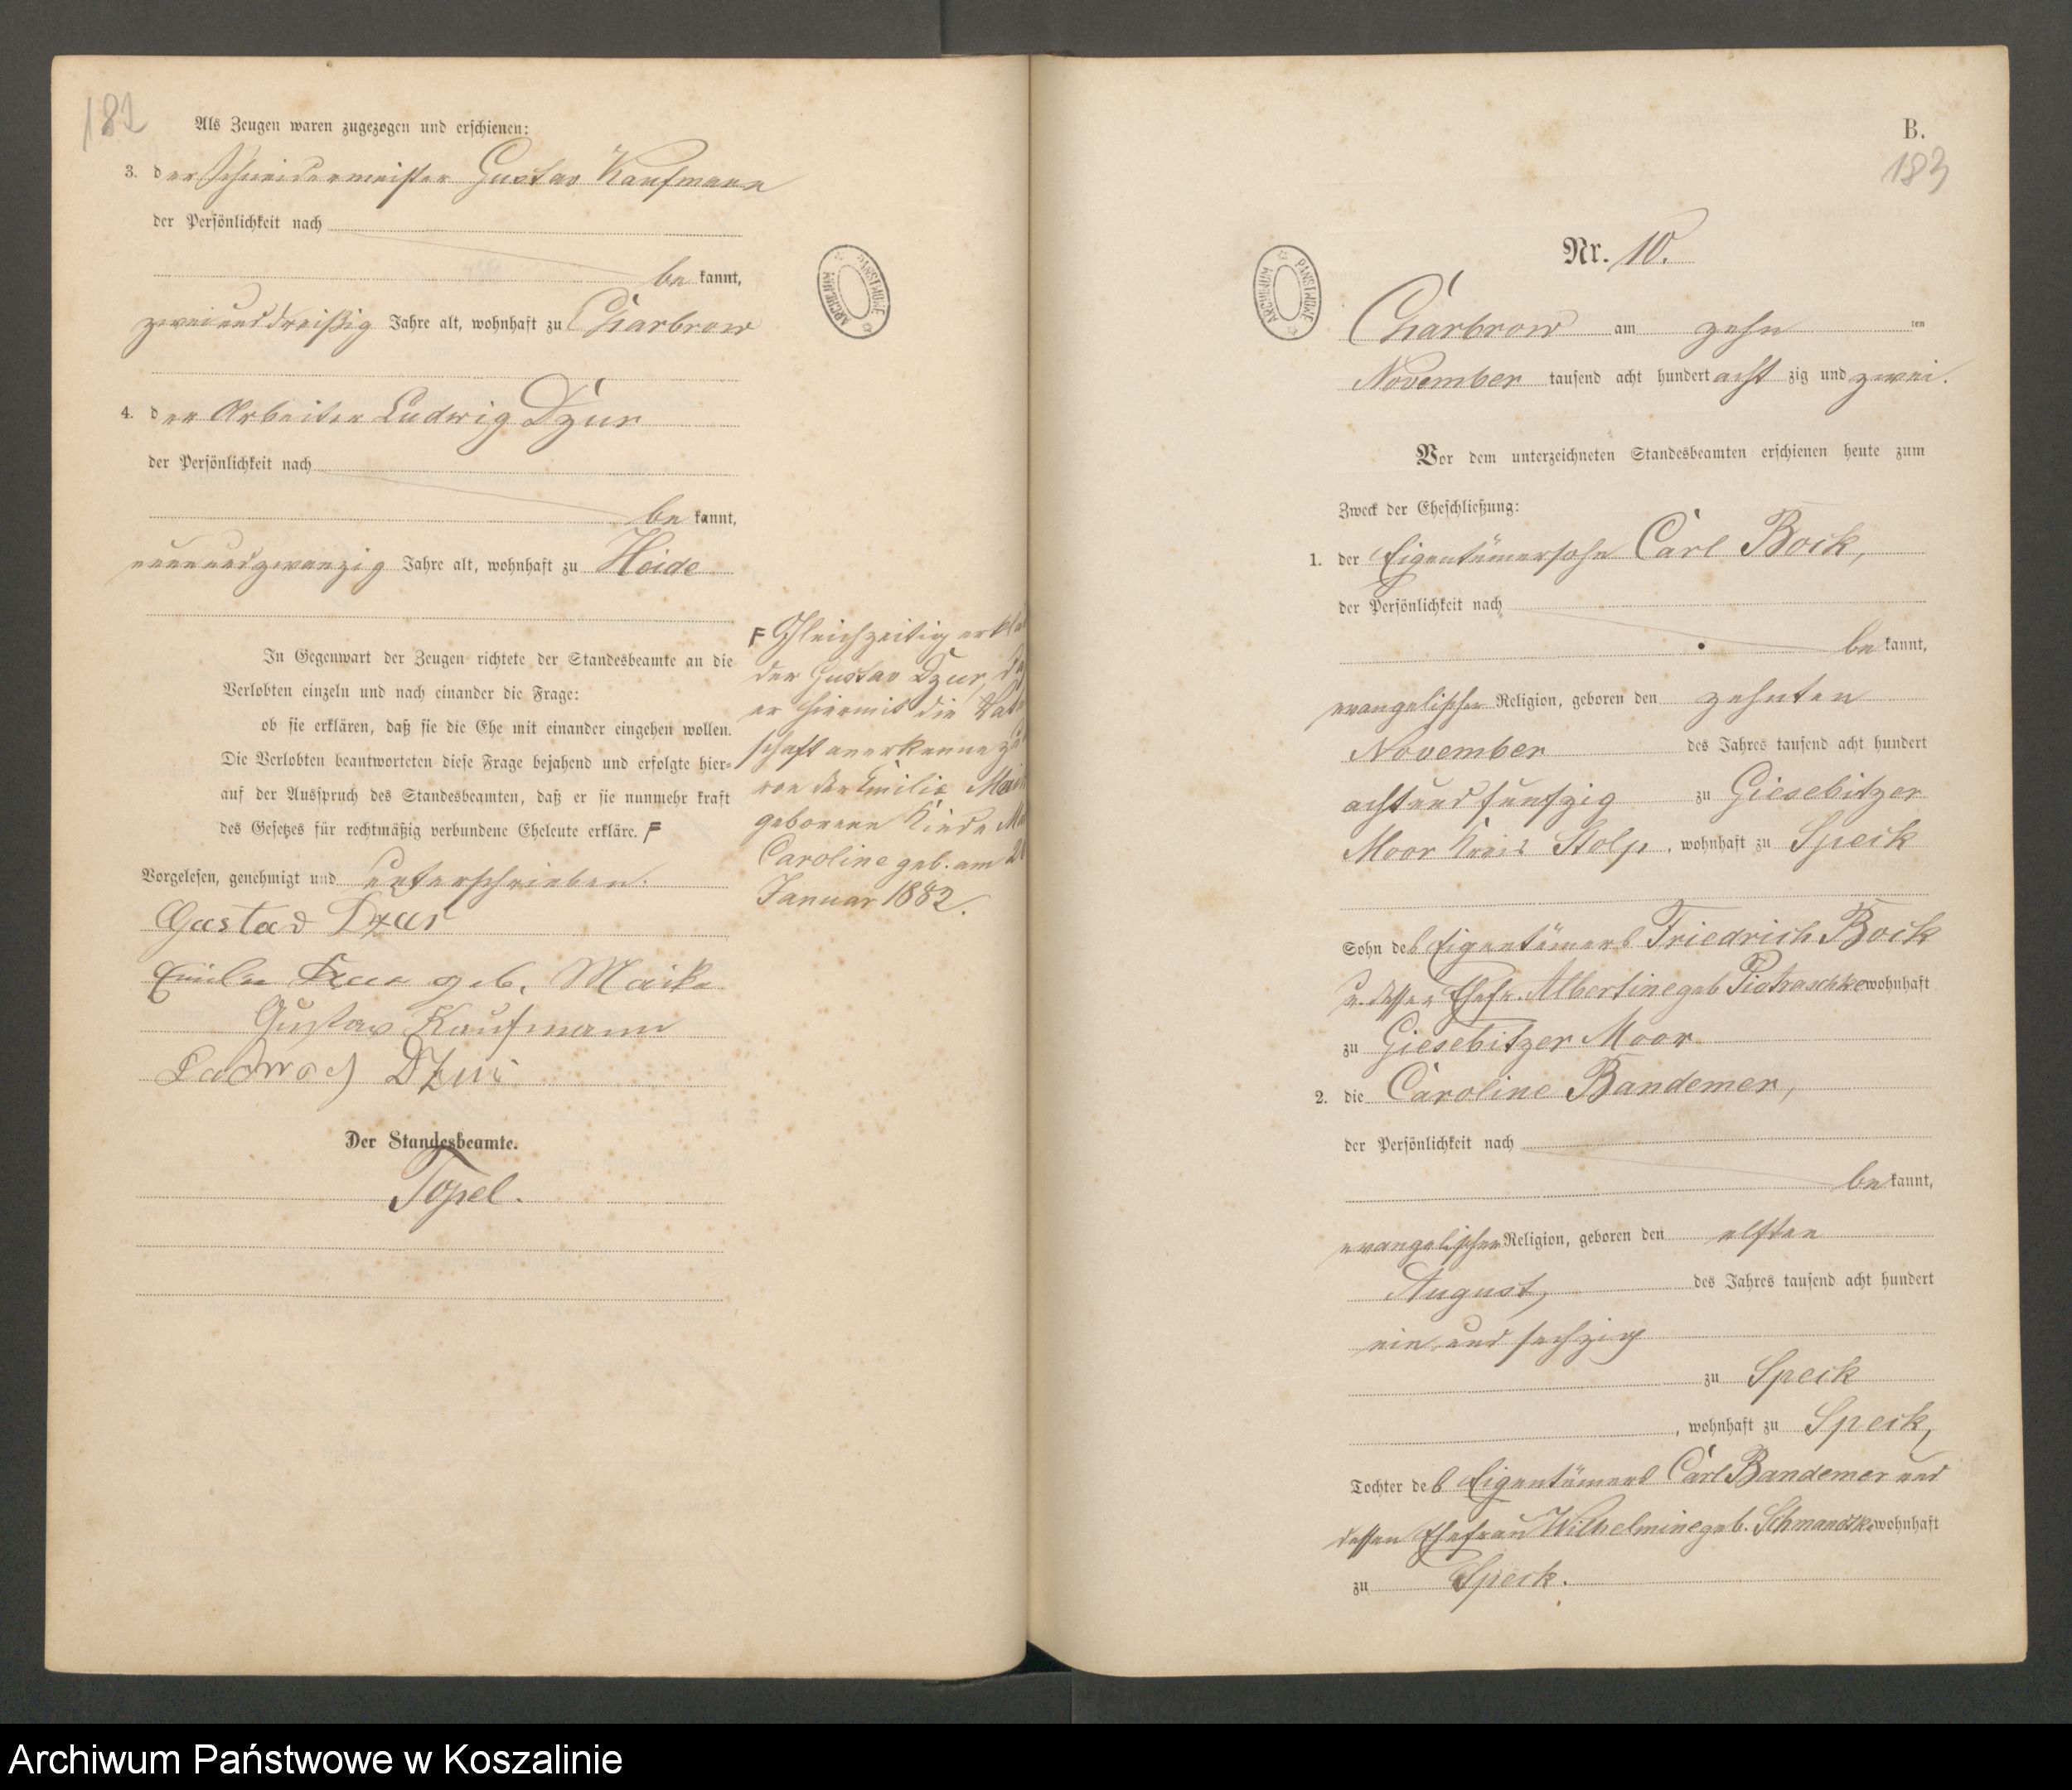 182
Als Zeugen waren zugezogen und erschienen:
3. der Schneidermeister Gustav Kaufmann
der Persönlichkeit nach
be kannt,
zweiunddreißig Jahre alt, wohnhaft zu Charbrow
4. der Arbeiter Ludwig Dzur
der Persönlichkeit nach
be kannt,
neunundzwanzig Jahre alt, wohnhaft zu Heide
In Gegenwart der Zeugen richtete der Standesbeamte an die
Verlobten einzeln und nach einander die Frage:
ob sie erklären, daß sie die Ehe mit einander eingehen wollen.
Die Verlobten beantworteten diese Frage bejahend und erfolgte hier-
auf der Ausspruch des Standesbeamten, daß er sie nunmehr kraft
des Gesetzes für rechtmäßig verbundene Eheleute erkläre. F
F Gleichzeitig erklä
der Gustav Dzur, da
er hiermit die Vate
schaft anerkenne zu
von der Emilie Maik
geborenen Kinde
Caroline geb. am 2
Januar 1882.
Vorgelesen, genehmigt und unterschrieben.
Gustav Dzur
Emilie geb. Maike
Gustav Kaufmann
Ludwig Dzur
Der Standesbeamte.
Topel.
ARCHIWUM PAŃSTWOWE
B.
183
Nr. 10.
ARCHIWUM PAŃSTWOWE
Charbrow am zehn ten
November tausend acht hundert acht zig und zwei.
Vor dem unterzeichneten Standesbeamten erschienen heute zum
Zweck der Eheschließung:
1. der Eigentümersohn Carl Bock,
der Persönlichkeit nach
be kannt,
evangelischer Religion, geboren den zehnten
November des Jahres tausend acht hundert
achtundfunfzig zu Giesebitzer
Moor Kreis Stolp, wohnhaft zu Speck
Sohn des Eigentümers Friedrich Bock
u. dessen Ehefr. Albertine geb. Pietraschke wohnhaft
zu Giesebitzer Moor
2. die Caroline Bandemer,
der Persönlichkeit nach
be kannt,
evangelischer Religion, geboren den elften
August, des Jahres tausend acht hundert
ein und sechzig
zu Speck
, wohnhaft zu Speck,
Tochter des Eigentümers Carl Bandemer und
dessen Ehefrau Wilhelmine geb. Schmandtke wohnhaft
zu Speck.
Archiwum Państwowe w Koszalinie